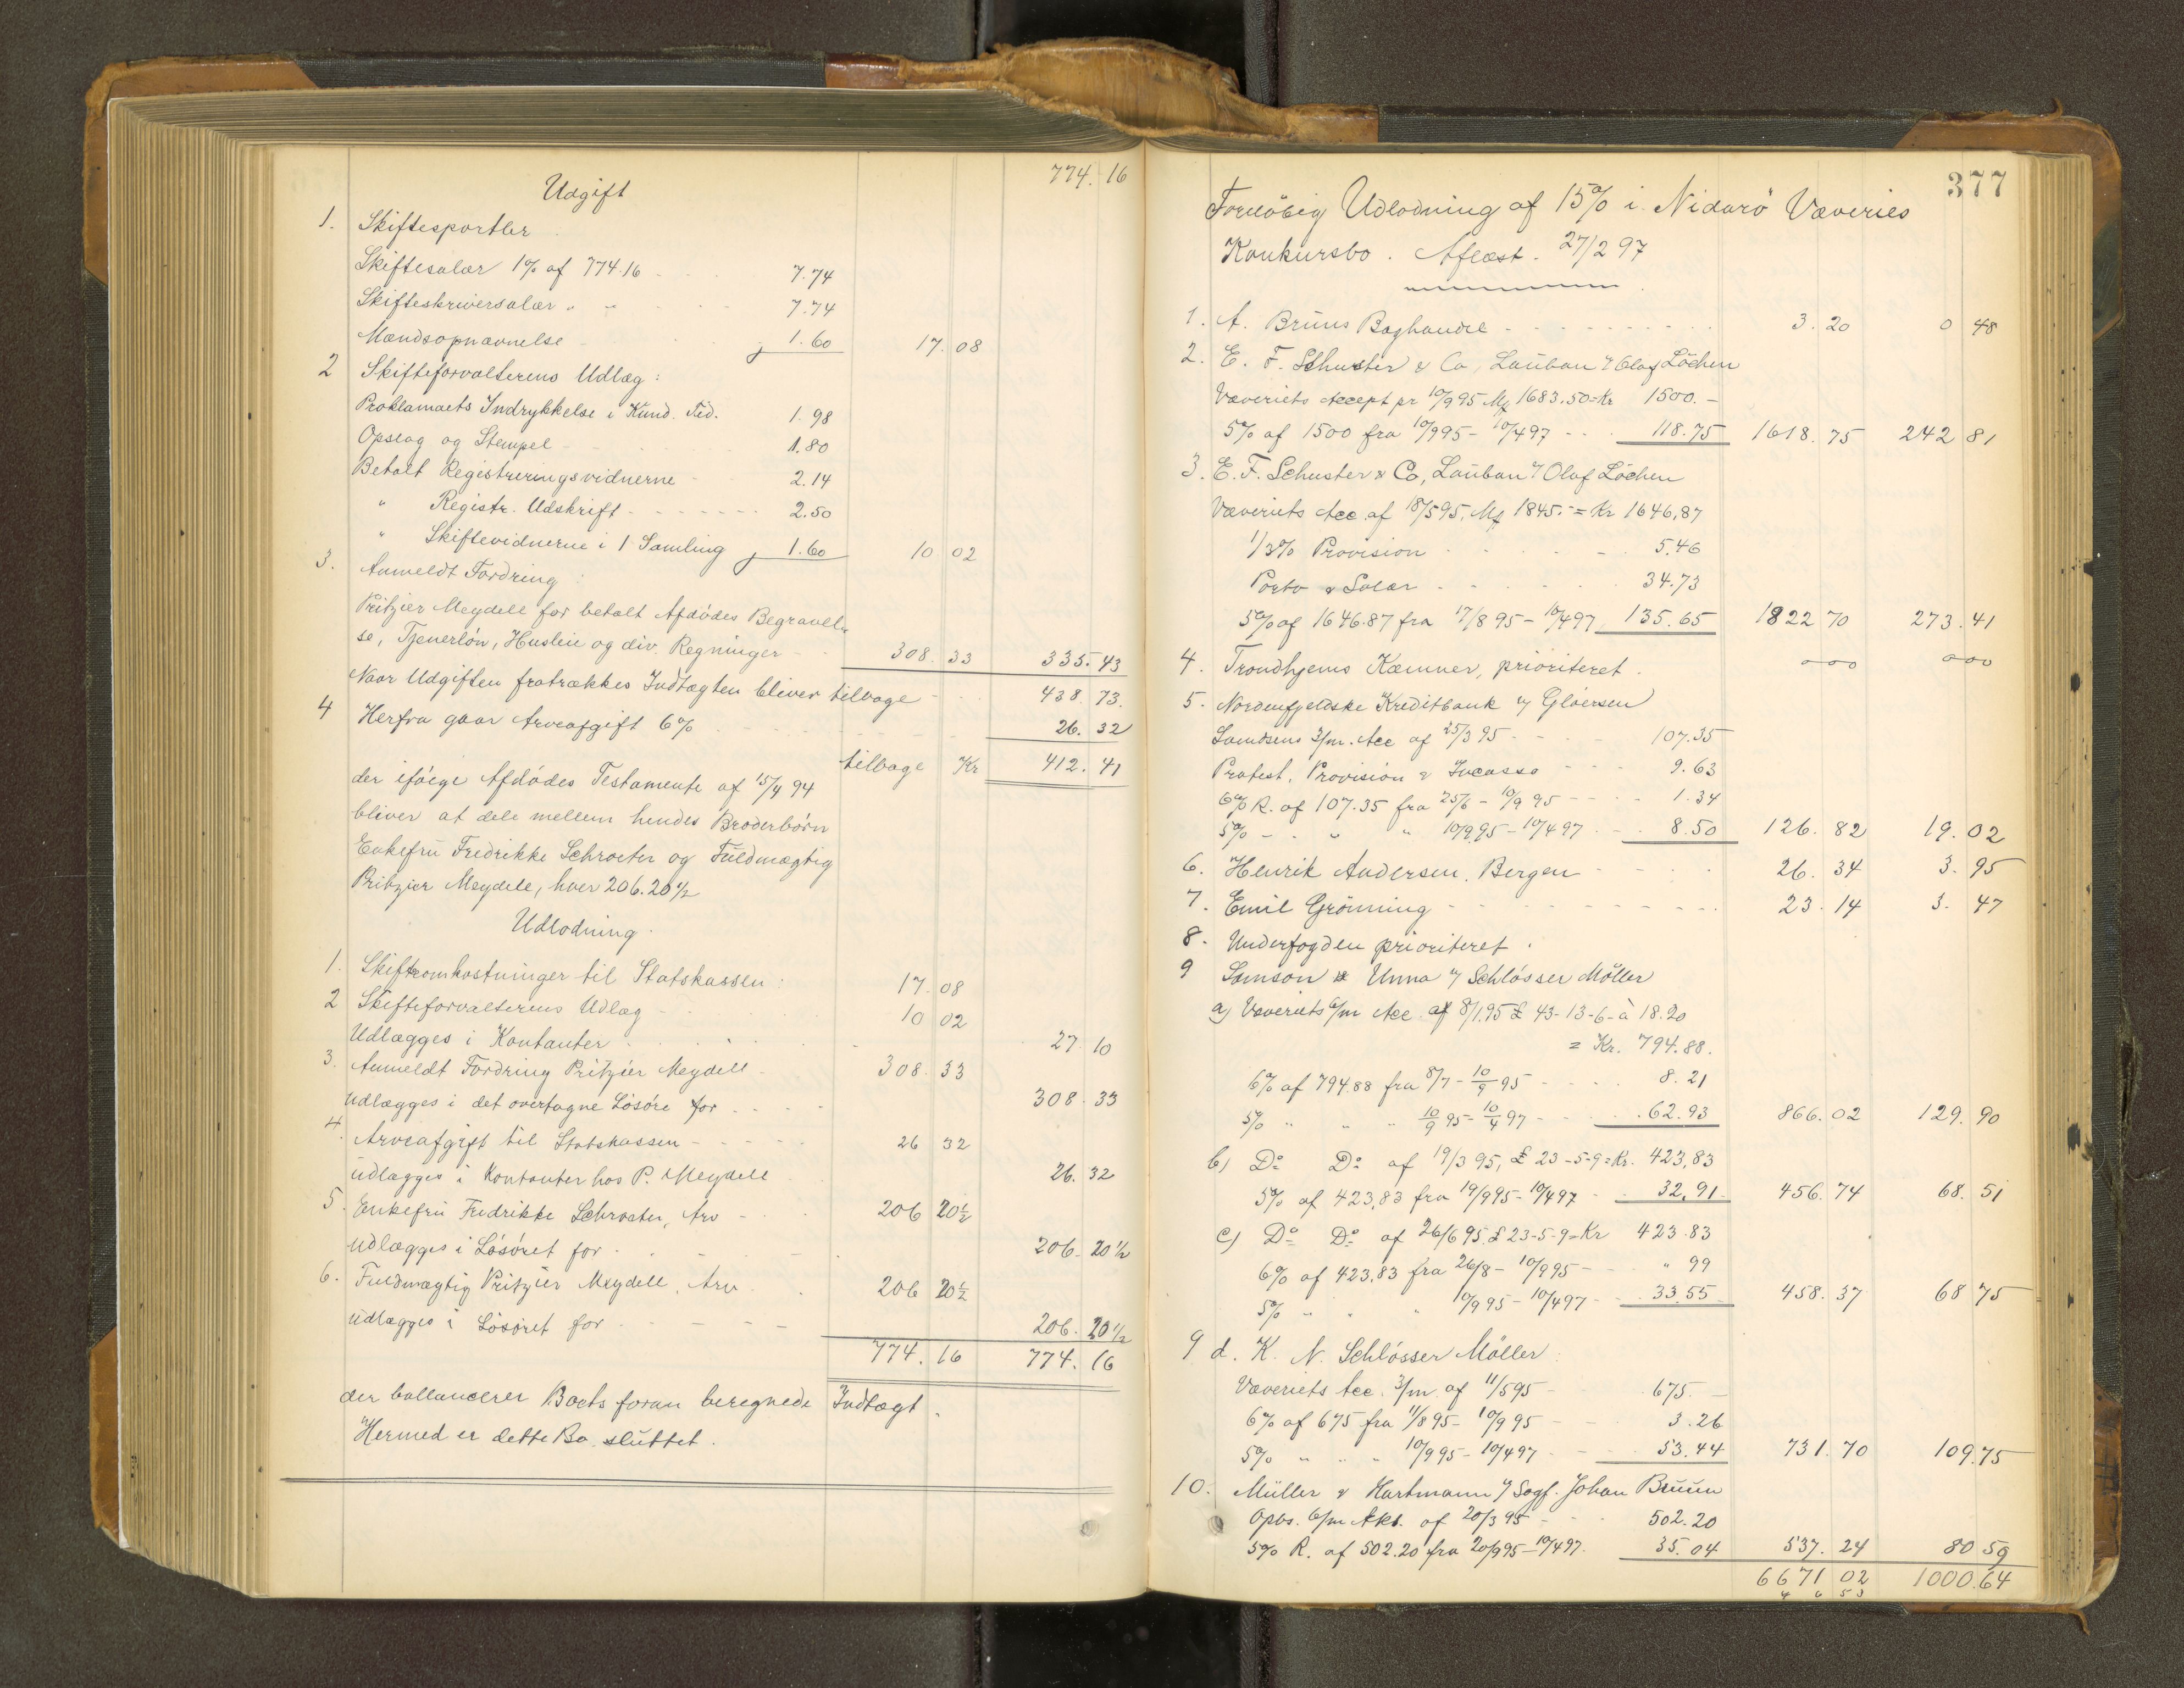 774. 16
Udgift
1. Skiftesportler
Skiftesalær 1% af 774.16 7.74
Skifteskriversalær " " 7.74
Mændsopnævnelse 1.60 17.08
2 Skifteforvalterens Udlæg:
Proklamaets Indrykkelse i Kund. Tid. 1.98
Opslag og Stempel 1.80
Betalt Registreringsvidnerne 2.14
" Registr. Udskrift 2.50
" Skiftevidnerne i 1 Samling 1.60 10 02
3. Anmeldt Fordring:
Pritzier Meydell for betalt Afdödes Begravel-
se, Tjenerlön, Husleie og div. Regninger 308.33 335.43
Naar Udgiften fratrækkes Indtægten bliver tilbage 438.73.
4 Herfra gaar Arveafgift 6% 26.32
tilbage Kr 412.41
der ifölge Afdödes Testamente af 15/4 94
bliver at dele mellem hendes Broderbörn
Enkefru Fredrikke Schroeter og Fuldmægtig
Pritzier Meydell, hver 206.20 1/2
Udlodning.
1. Skifteomkostninger til Statskassen: 17.08
2 Skifteforvalterens Udlæg 10 02
Udlægges i Kontanter 27.10
3. Anmeldt Fordring Pritzier Meydell 308.33
udlægges i det overtagne Lösöre for 308.33
4. Arveafgift til Statskassen 26 32
udlægges i Kontanter hos P. Meydell 26.32
5. Enkefru Fredrikke Schroeter, Arv 206 20 1/2
udlægges i Lösöret for 206.20 1/2
6. Fuldmægtig Pritzier Meydell, Arv 206 20 1/2
udlægges i Lösöret for 206.20 1/2
774.16 774.16
der ballancerer Boets foran beregnede Indtægt.
Hermed er dette Bo sluttet.
377
Foreløbig Udlodning af 15% i Nidarö Væveries
Konkursbo. Aflæst. 27/2 97
1. A. Bruns Boghandel 3.20 0 48
2. E. F. Schuster & Co, Lauban v/ Olaf Löchen
Væveriets Accept pr 10/9 95 Mk 1683.50 = Kr 1500.-
5% af 1500 fra 10/9 95 - 10/4 97 118.75 1618.75 242 81
3. E. F. Schuster & Co, Lauban v/ Olaf Löchen
Væveriets Acc. af 18/5 95, Mk 1845.- = Kr 1646,87
1/3% Provision 5.46
Porto & Salær 34.73
5% af 1646.87 fra 17/8 95 - 10/4 97 135.65 1822 70 273.41
4. Trondhjems Kæmner, prioriteret. ooo ooo
5. Nordenfjeldske Kreditbank v/ Glöersen
3/m. Acc af 25/3 95 107.35
Protest, Provision & Incasso 9.63
6% R. af 107.35 fra 25/6 - 10/9 95 1.34
5% - " " 10/9 95 - 10/4 97 8.50 126.82 19.02
6. Henrik Andersen. Bergen 26.34 3.95
7. Emil Grönning 23.14 3.47
8. Underfogden prioriteret.
9 Samson & Unna v/ Schlösser Möller
a) Væveriets 6/m Acc. af 8/1 95 £ 43-13-6- à 18.20
= Kr. 794.88.
6% af 794.88 fra 8/7 - 10/9 95 8.21
5% " " " 10/9 95 - 10/4 97 62.93 866.02 129.90
b) Do Do af 19/3 95, £ 23-5-9 = Kr. 423,83
5% af 423,83 fra 19/9 95 - 10/4 97 32,91 456.74 68.51
c) Do Do af 26/6 95. £ 23-5-9 = Kr 423.83
6% af 423,83 fra 26/8 - 10/9 95 " 99
5% " " " 10/9 95 - 10/4 97 33.55 458.37 68 75
9 d. K. N. Schlösser Möller
Væveriets Acc. 3/m af 11/5 95 675.-
6% af 675 fra 11/8 95 - 10/9 95 3.26
5% " " " 10/9 95 - 10/4 97 53.44 731.70 109.75
10. Müller & Hartmann v/ Sagf. Johan Bruun
6/m Akc. af 20/3 95 502.20
5% R. af 502.20 fra 20/9 95 - 10/4 97. 35.04 537.24 80 59
6671 02 1000.64